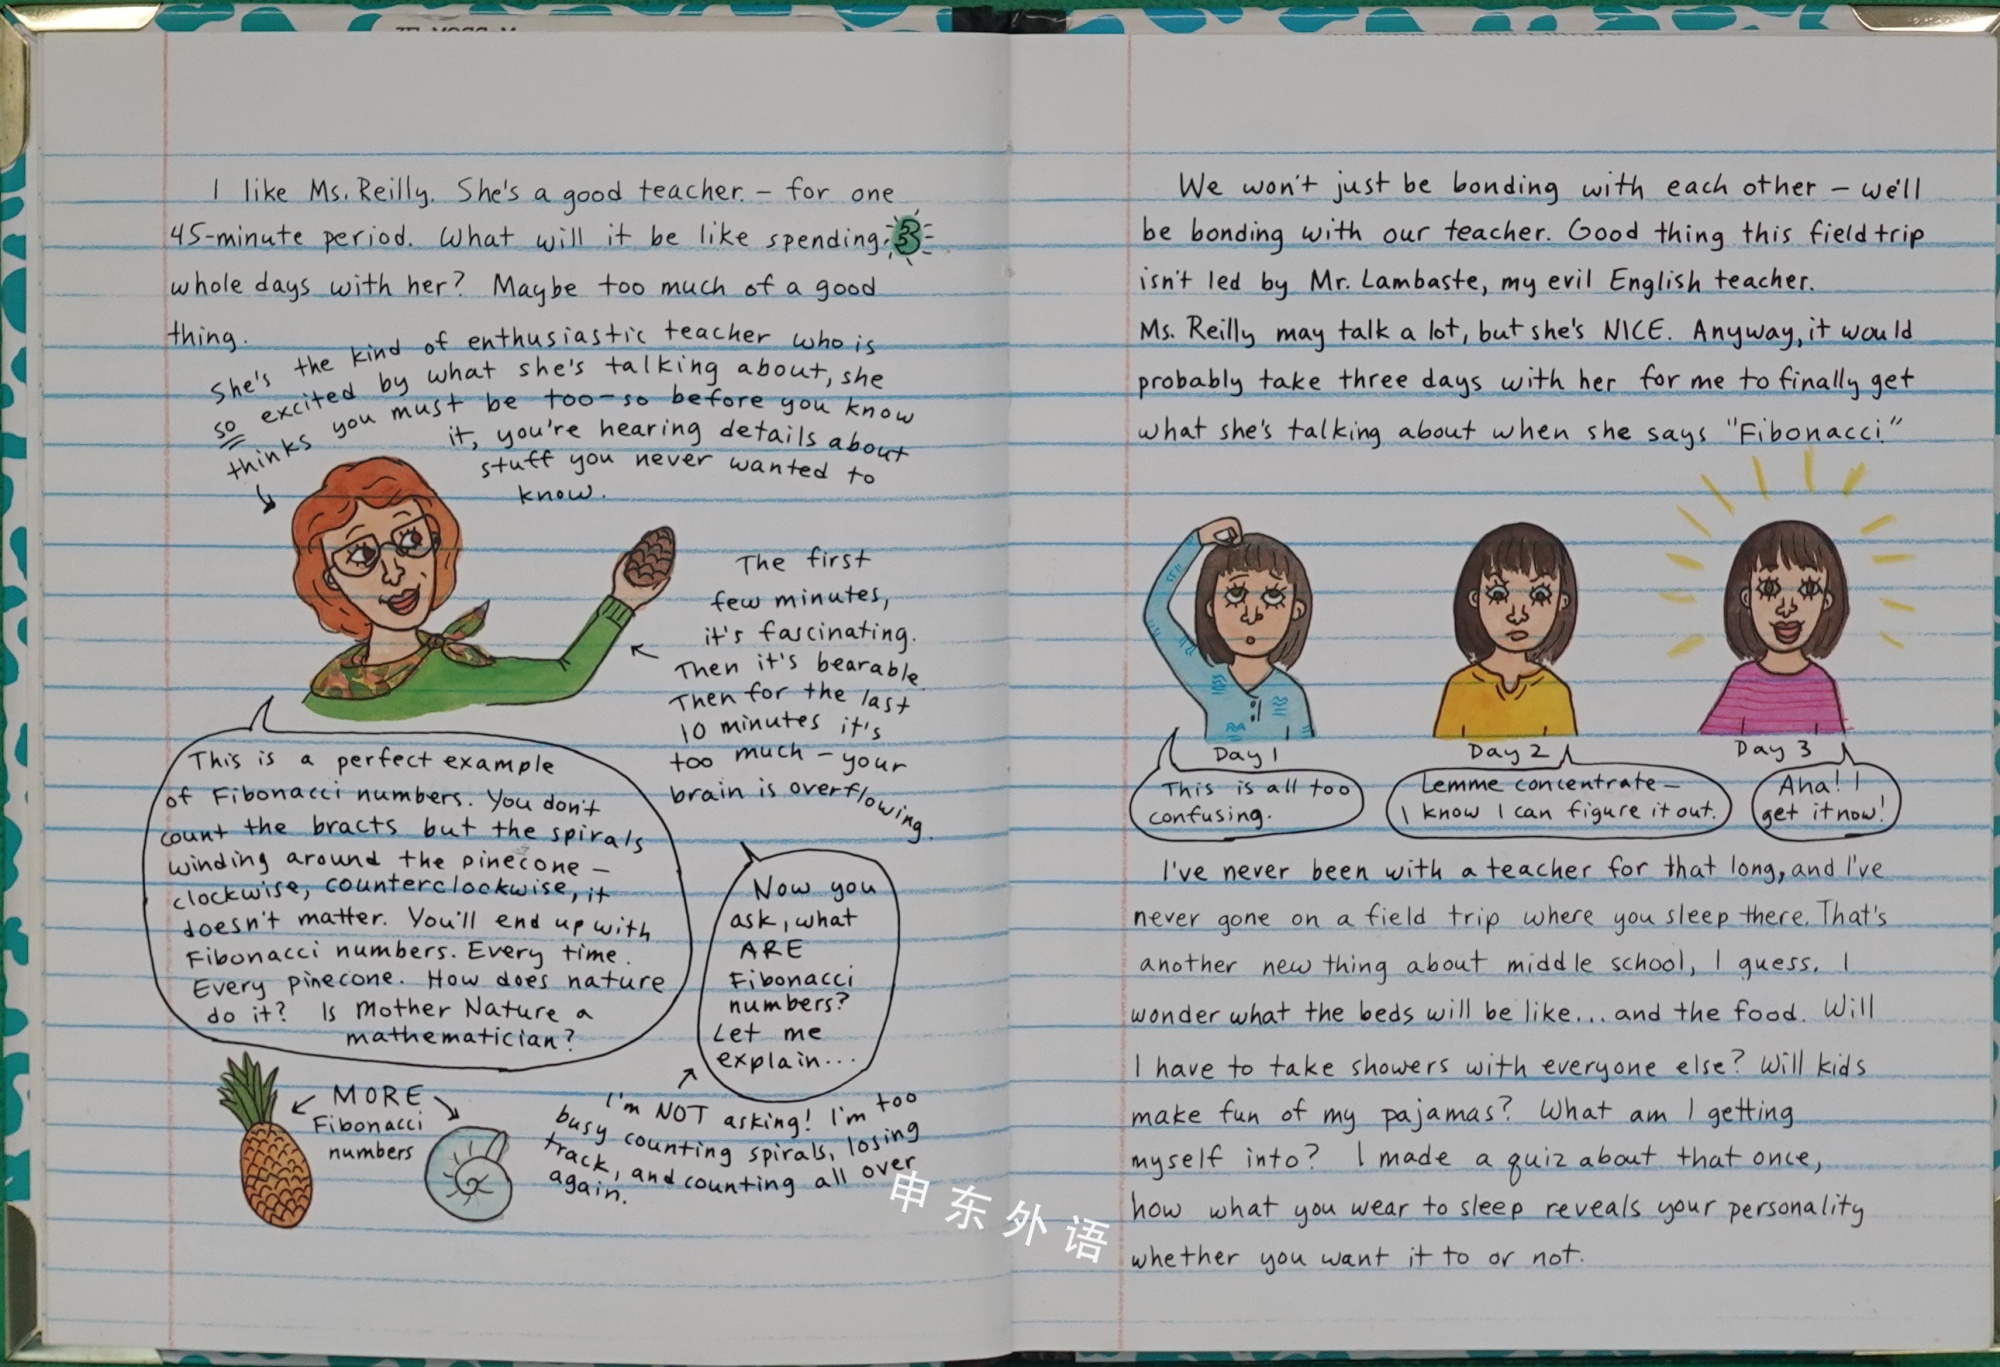 I like Ms. Reilly. She's a good teacher. – for one
45-minute period. What will it be like spending 3
whole days with her? Maybe too much of a good
thing.
She's the kind of enthusiastic teacher who is
so excited by what she's talking about, she
thinks you must be too – so before you know
it, you're hearing details about
stuff you never wanted to
know.
The first
few minutes,
it's fascinating.
Then it's bearable.
Then for the last
10 minutes it's
too much – your
brain is overflowing.
This is a perfect example
of Fibonacci numbers. You don't
count the bracts but the spirals
winding around the pinecone –
clockwise, counterclockwise, it
doesn't matter. You'll end up with
Fibonacci numbers. Every time.
Every pinecone. How does nature
do it? Is Mother Nature a
mathematician?
Now you
ask, what
ARE
Fibonacci
numbers?
Let me
explain...
MORE
Fibonacci
numbers
I'm NOT asking! I'm too
busy counting spirals, losing
track, and counting all over
again.
We won't just be bonding with each other – we'll
be bonding with our teacher. Good thing this field trip
isn't led by Mr. Lambaste, my evil English teacher.
Ms. Reilly may talk a lot, but she's NICE. Anyway, it would
probably take three days with her for me to finally get
what she's talking about when she says "Fibonacci."
Day 1
Day 2
Day 3
This is all too
confusing.
Lemme concentrate –
I know I can figure it out.
Aha! I
get it now!
I've never been with a teacher for that long, and I've
never gone on a field trip where you sleep there. That's
another new thing about middle school, I guess. I
wonder what the beds will be like... and the food. Will
I have to take showers with everyone else? Will kids
make fun of my pajamas? What am I getting
myself into? I made a quiz about that once,
how what you wear to sleep reveals your personality
whether you want it to or not.
申东外语